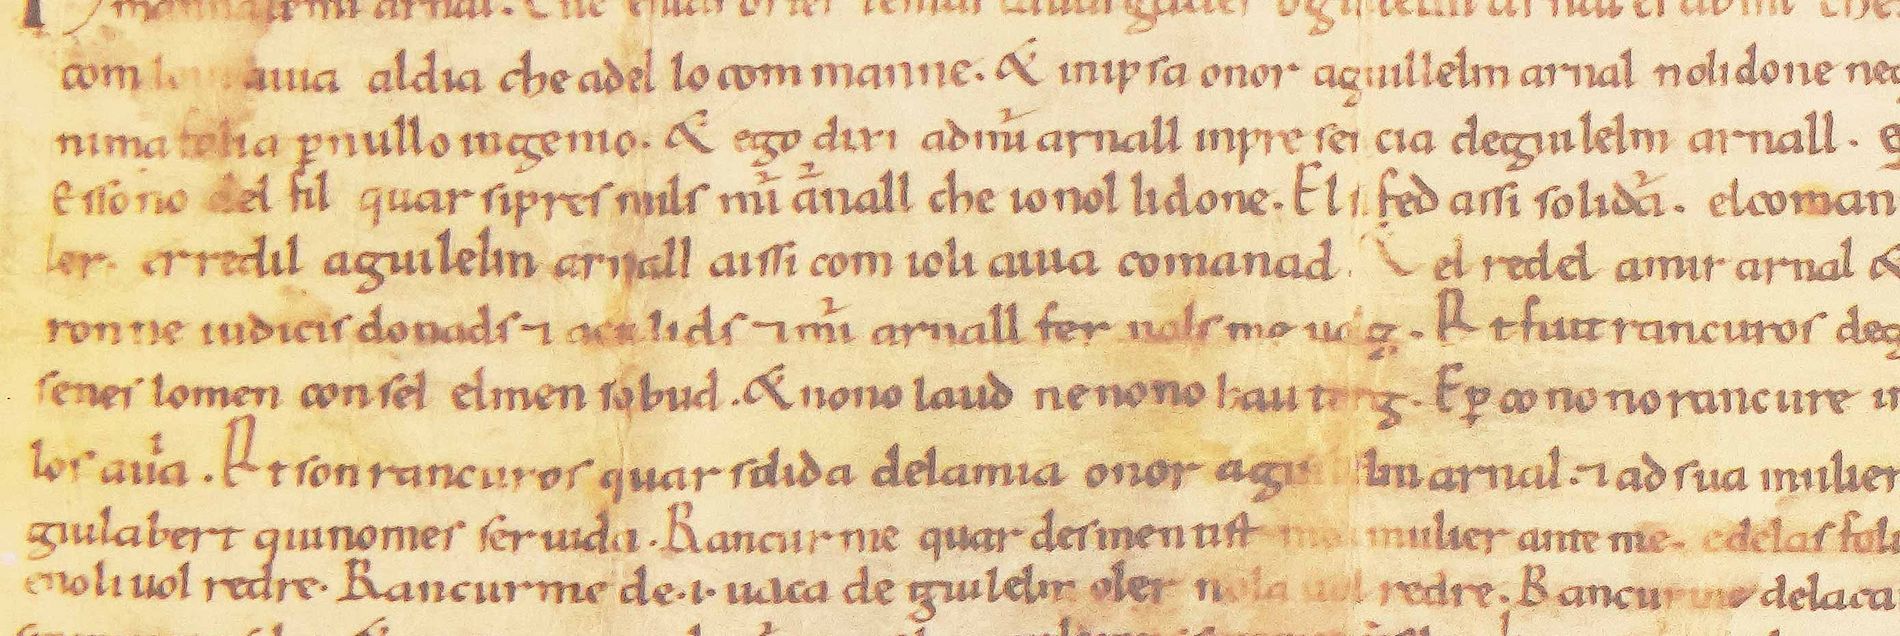 com auia aldia che adel locom manne. & inipsa onor aguillelm arnal nolidone nec
nima tolia ꝑnullo ingenio. & ego dixi admir arnall inpre sencia deguilelm arnall.
Essono del fil quar sipres nuls mir arnall che ionol lidone. El fed assi solidar. elcoman
ler. erredil aguilelm arnall aissi com ioli auia comanad. & el redel amir arnal &
ronne iudicis donads ⁊ acullids ⁊ mir arnall fer nols mo uolg. Et fuit rancuros deg
senes lomen consel elmen sobud. & nono laud nenono hau torg. Eꝑ co no norancure
los auia. Et son rancuros quar solida delamia onor aguilelm arnal. ⁊ ad sua mulier
guilabert quinomes seruida. Rancurme quar desmentist mo mulier ante me. edelas
enoliuol redre. Rancurme de .i. uaca de guilelm oler nola uol redre. Rancurme delaca